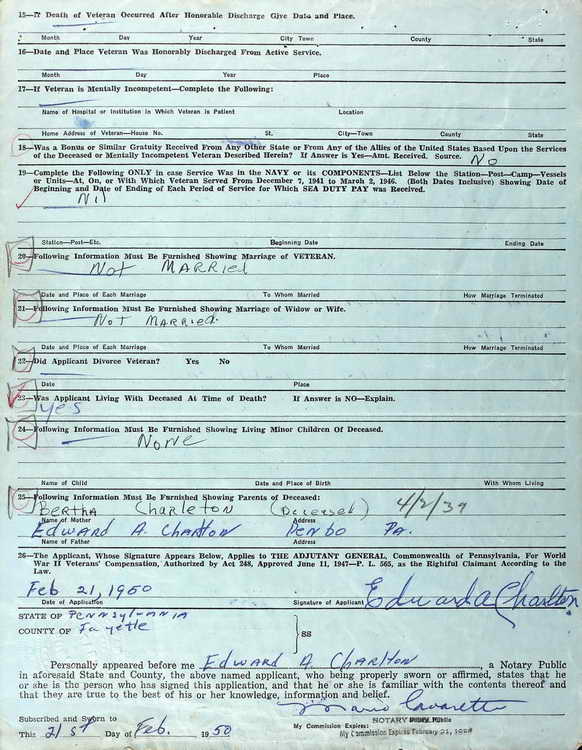 15—If Death of Veteran Occurred After Honorable Discharge Give Date and Place.
Month Day Year City Town County State
16—Date and Place Veteran Was Honorably Discharged From Active Service.
Month Day Year Place
17—If Veteran is Mentally Incompetent—Complete the Following:
Name of Hospital or Institution in Which Veteran is Patient Location
Home Address of Veteran—House No. St. City—Town County State
18—Was a Bonus or Similar Gratuity Received From Any Other State or From Any of the Allies of the United States Based Upon the Services
of the Deceased or Mentally Incompetent Veteran Described Herein? If Answer is Yes—Amt. Received. Source. No
19—Complete the Following ONLY in case Service Was in the NAVY or its COMPONENTS—List Below the Station—Post—Camp—Vessels
or Units—At, On, or With Which Veteran Served From December 7, 1941 to March 2, 1946. (Both Dates Inclusive) Showing Date of
Beginning and Date of Ending of Each Period of Service for Which SEA DUTY PAY was Received.
Nil
Station—Post—Etc. Beginning Date Ending Date
20—Following Information Must Be Furnished Showing Marriage of VETERAN.
Not MARRied
Date and Place of Each Marriage To Whom Married How Marriage Terminated
21—Following Information Must Be Furnished Showing Marriage of Widow or Wife.
Not MARRied.
Date and Place of Each Marriage To Whom Married How Marriage Terminated
22—Did Applicant Divorce Veteran? Yes No
Date Place
23—Was Applicant Living With Deceased At Time of Death? If Answer is NO—Explain.
yes
24—Following Information Must Be Furnished Showing Living Minor Children Of Deceased.
None
Name of Child Date and Place of Birth With Whom Living
25—Following Information Must Be Furnished Showing Parents of Deceased:
BERTHA CHARLETON (Deceased) 4/2/39
Name of Mother Address
Edward A. Charlton Penbo Pa.
Name of Father Address
26—The Applicant, Whose Signature Appears Below, Applies to THE ADJUTANT GENERAL, Commonwealth of Pennsylvania, For World
War II Veterans' Compensation, Authorized by Act 248, Approved June 11, 1947—P. L. 565, as the Rightful Claimant According to the
Law.
Feb 21, 1950 Edward A Charlton
Date of Application Signature of Applicant
STATE OF PENNSYLVANIA
COUNTY OF Fayette
} SS
Personally appeared before me Edward A. Charlton, a Notary Public
in aforesaid State and County, the above named applicant, who being properly sworn or affirmed, states that he
or she is the person who has signed this application, and that he or she is familiar with the contents thereof and
that they are true to the best of his or her knowledge, information and belief.
Mario Cavarett
Subscribed and Sworn to NOTARY Public
This 21st Day of Feb. 1950 My Commission Expires: My Commission Expires February 21,